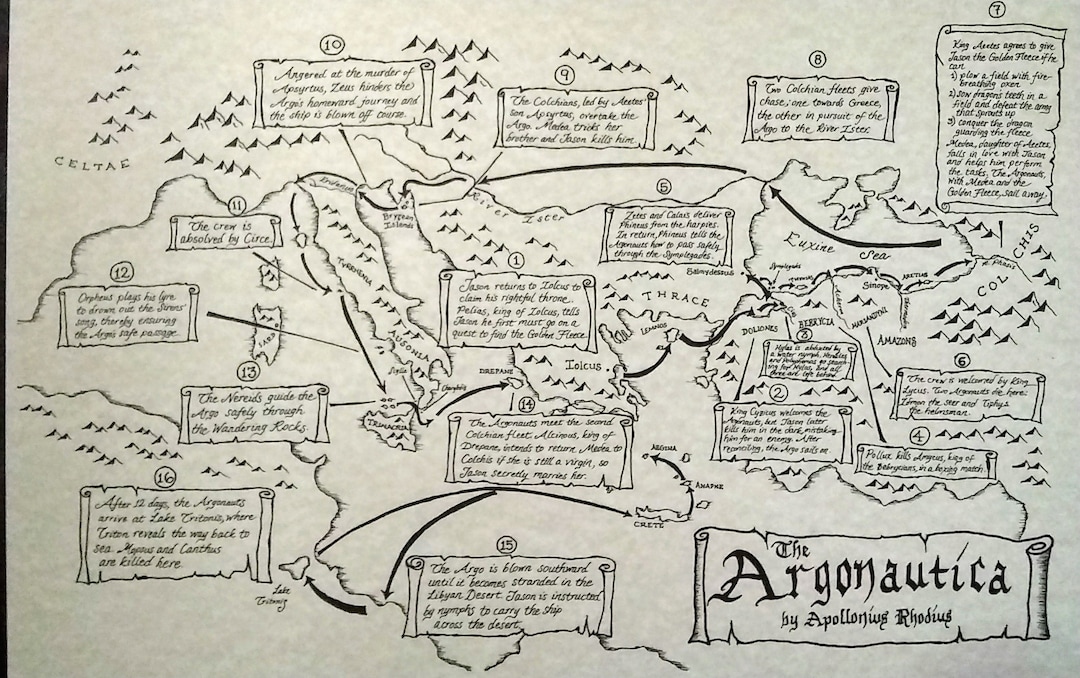 The
Argonautica
by Apollonius Rhodius
1
Jason returns to Iolcus to
claim his rightful throne.
Pelias, king of Iolcus, tells
Jason he first must go on a
quest to find the Golden Fleece.
2
King Cyzicus welcomes the
Argonauts, but Jason later
kills him in the dark, mistaking
him for an enemy. After
reconciling, the Argo sails on.
3
Hylas is abducted by
a water nymph. Herakles
and Polyphemus go search-
ing for Hylas, and all
three are left behind.
4
Pollux kills Amycus, king of
the Bebrycians, in a boxing match.
5
Zetes and Calais deliver
Phineus from the harpies.
In return, Phineus tells the
Argonauts how to pass safely
through the Symplegades.
6
The crew is welcomed by King
Lycus. Two Argonauts die here:
Idmon the seer and Tiphys
the helmsman.
7
King Aeetes agrees to give
Jason the Golden Fleece if he
can
1) plow a field with fire-
breathing oxen
2) sow dragons teeth in a
field and defeat the army
that sprouts up
3) conquer the dragon
guarding the fleece
Medea, daughter of Aeetes,
falls in love with Jason
and helps him perform
the tasks. The Argonauts,
with Medea and the
Golden Fleece, sail away.
8
Two Colchian fleets give
chase; one towards Greece,
the other in pursuit of the
Argo to the River Ister.
9
The Colchians, led by Aeetes'
son Apsyrtus, overtake the
Argo. Medea tricks her
brother and Jason kills him.
10
Angered at the murder of
Apsyrtus, Zeus hinders the
Argo's homeward journey and
the ship is blown off course.
11
The crew is
absolved by Circe.
12
Orpheus plays his lyre
to drown out the Sirens'
song, thereby ensuring
the Argo's safe passage.
13
The Nereids guide the
Argo safely through
the Wandering Rocks.
14
The Argonauts meet the second
Colchian fleet. Alcinous, king of
Drepane, intends to return Medea to
Colchis if she is still a virgin, so
Jason secretly marries her.
15
The Argo is blown southward
until it becomes stranded in the
Libyan Desert. Jason is instructed
by nymphs to carry the ship
across the desert.
16
After 12 days, the Argonauts
arrive at Lake Tritonis, where
Triton reveals the way back to
sea. Mopsus and Canthus
are killed here.
CELTAE
Eridanus
Brygean
Islands
River Ister
Euxine Sea
COLCHIS
R. Phasis
ARETIUS
Sinope
Symplegades
Salmydessus
THRACE
BEBRYCIA
MARIANDYNI
AMAZONS
DOLIONES
LEMNOS
Iolcus
TYRRHENIA
AUSONIA
SARD
Scylla
Charybdis
TRINACRIA
DREPANE
AEGINA
ANAPHE
CRETE
Lake
Tritonis